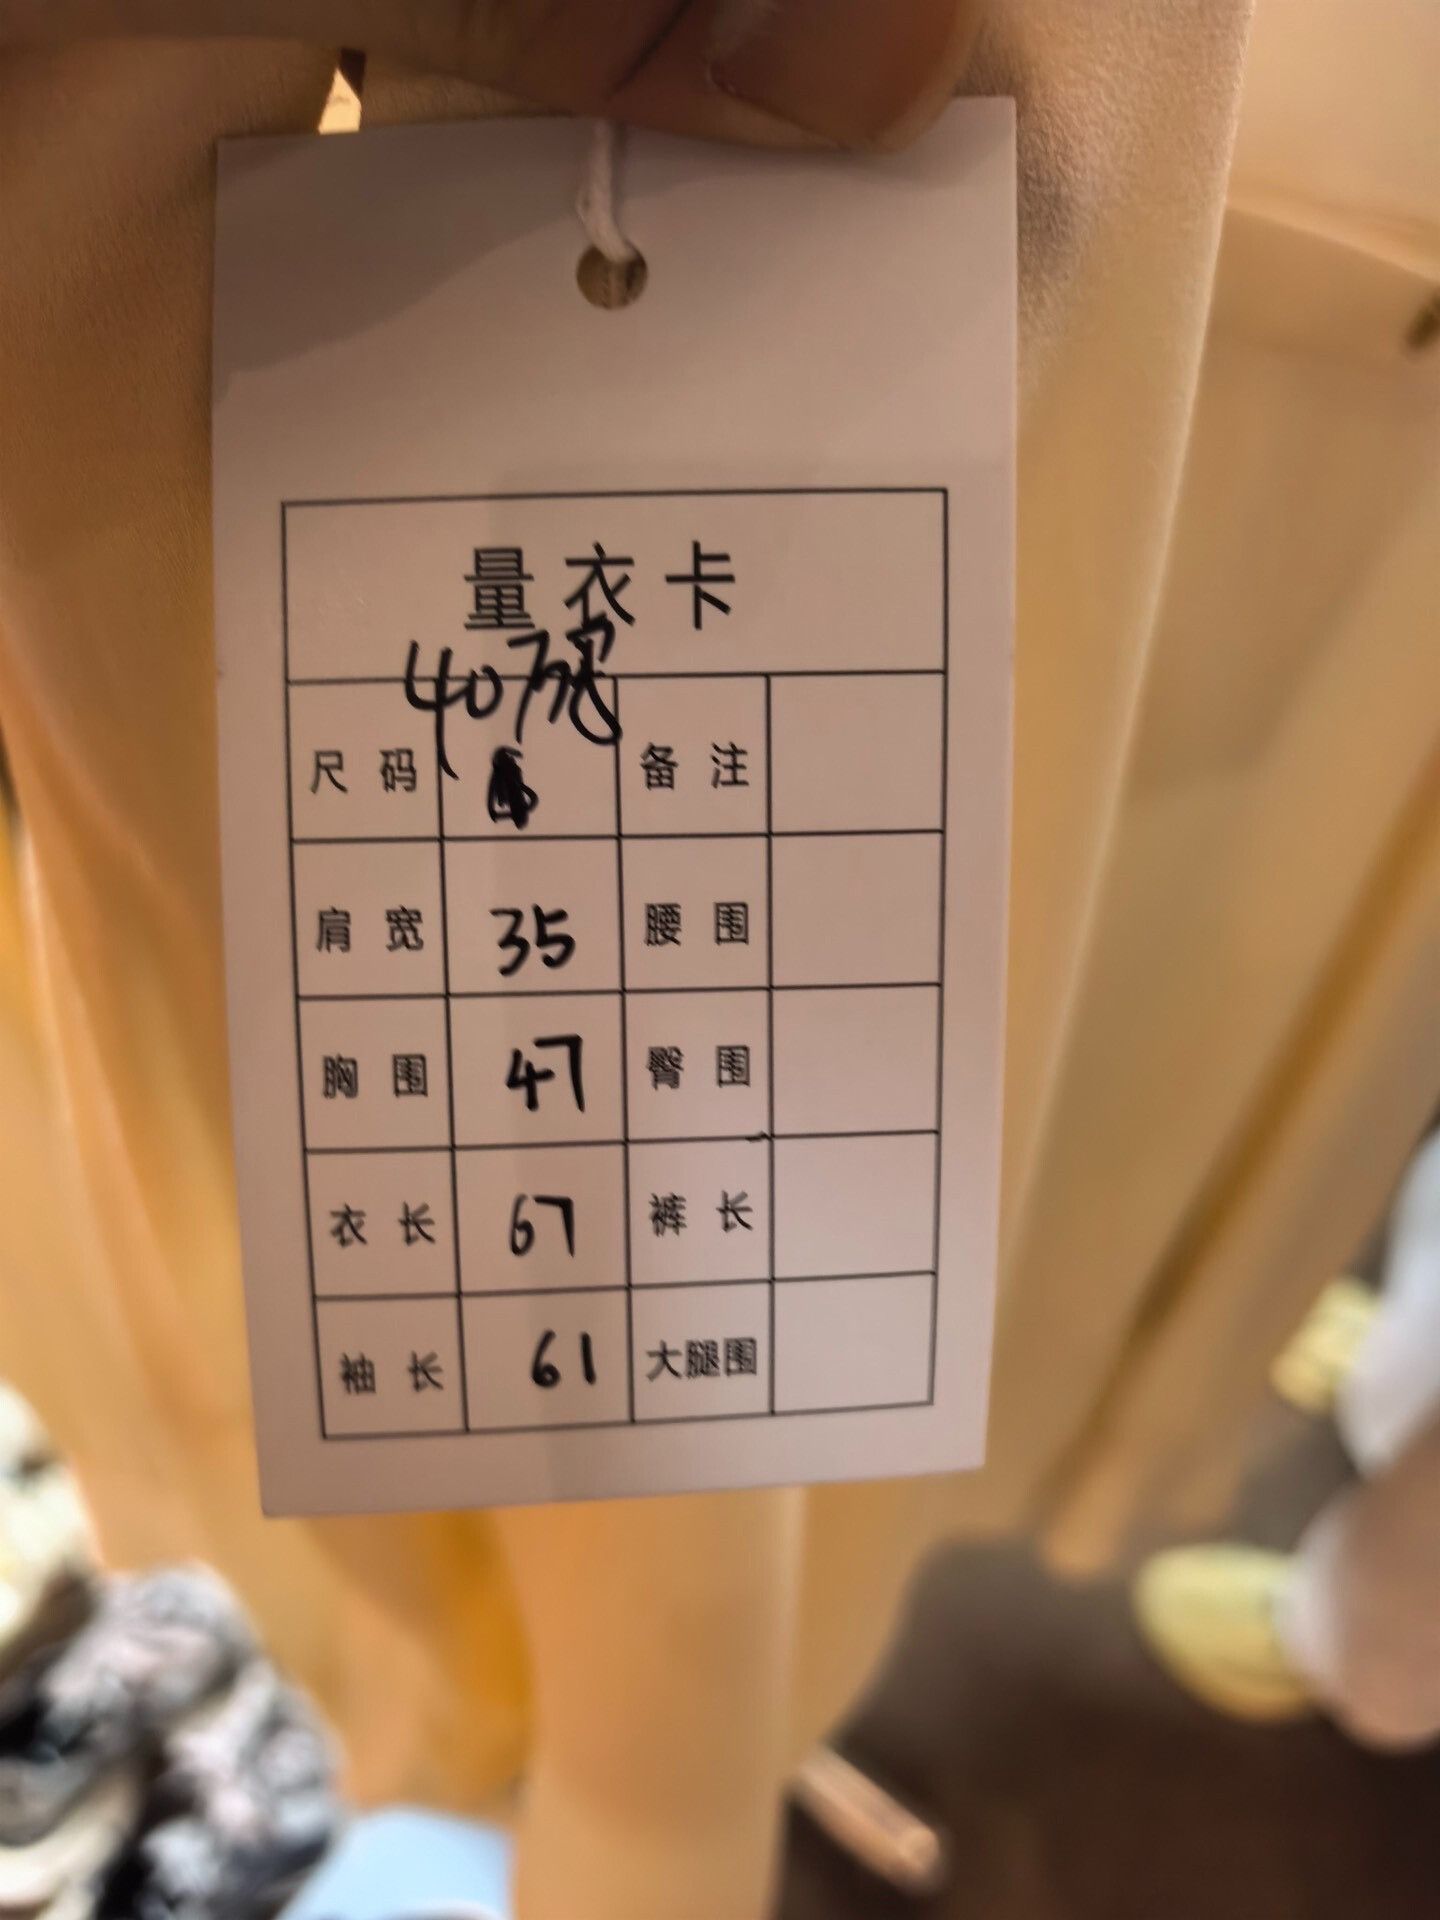 量衣卡
尺码 40码 备注
肩宽 35 腰围
胸围 47 臀围
衣长 67 裤长
袖长 61 大腿围